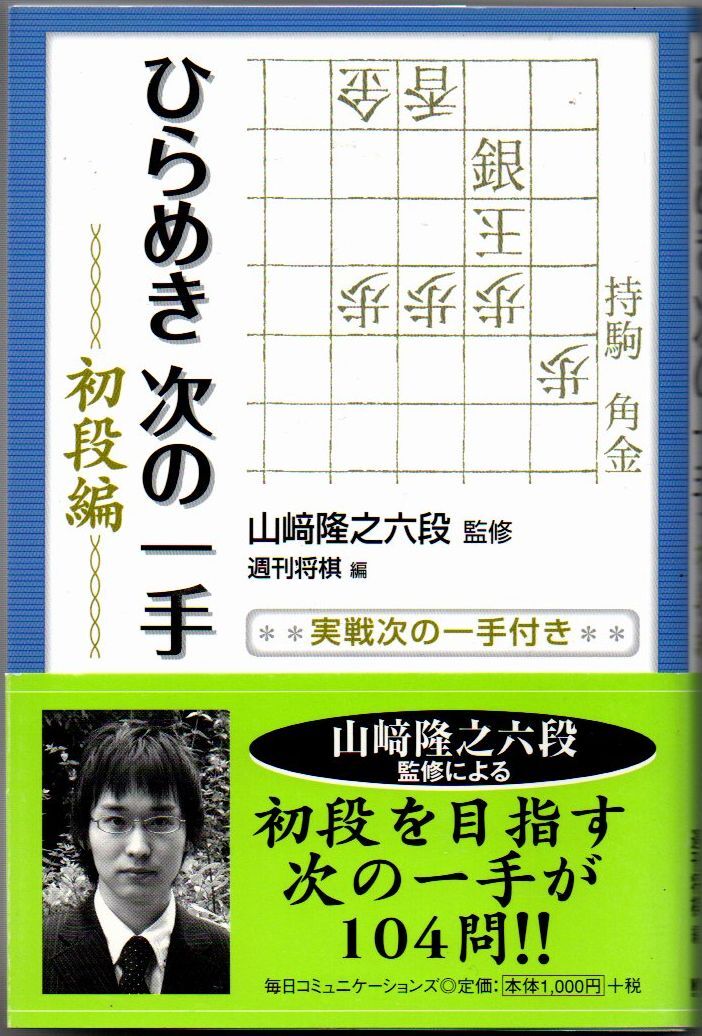 ひらめき 次の一手
初段編
金 香
銀
玉
歩 歩 歩
歩
持駒 角金
山﨑隆之六段 監修
週刊将棋 編
＊＊実戦次の一手付き＊＊
山﨑隆之六段
監修による
初段を目指す
次の一手が
104問!!
毎日コミュニケーションズ◎定価：本体1,000円＋税